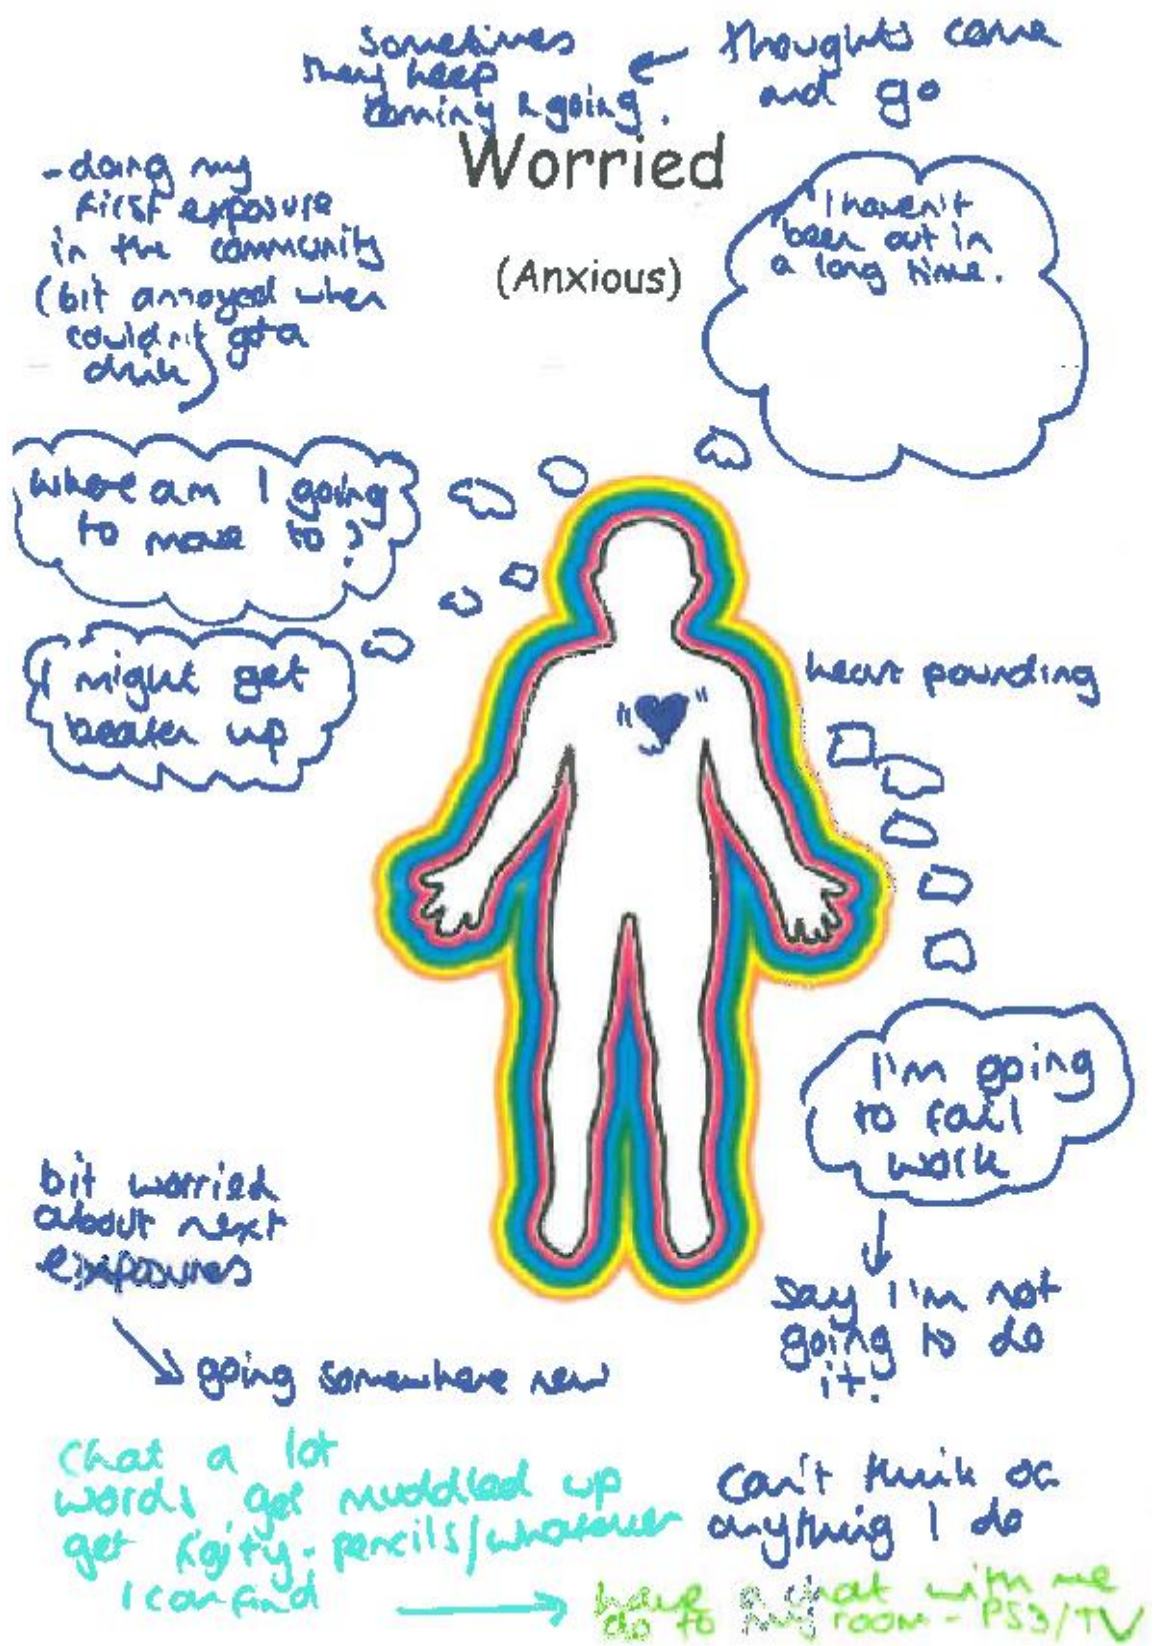 Sometimes
they keep
coming & going.
thoughts come
and go
Worried
(Anxious)
- doing my
first exposure
in the community
(bit annoyed when
couldn't get a
drink)
"I haven't
been out in
a long time.
where am I going
to move to?
I might get
beaten up
heart pounding
I'm going
to fail
work
say I'm not
going to do
it.
bit worried
about next
exposures
going somewhere new
Chat a lot
words get muddled up
get figity - pencils/whatever
I can find
can't think of
anything I do
have a chat with me
go to my room - PS3/TV